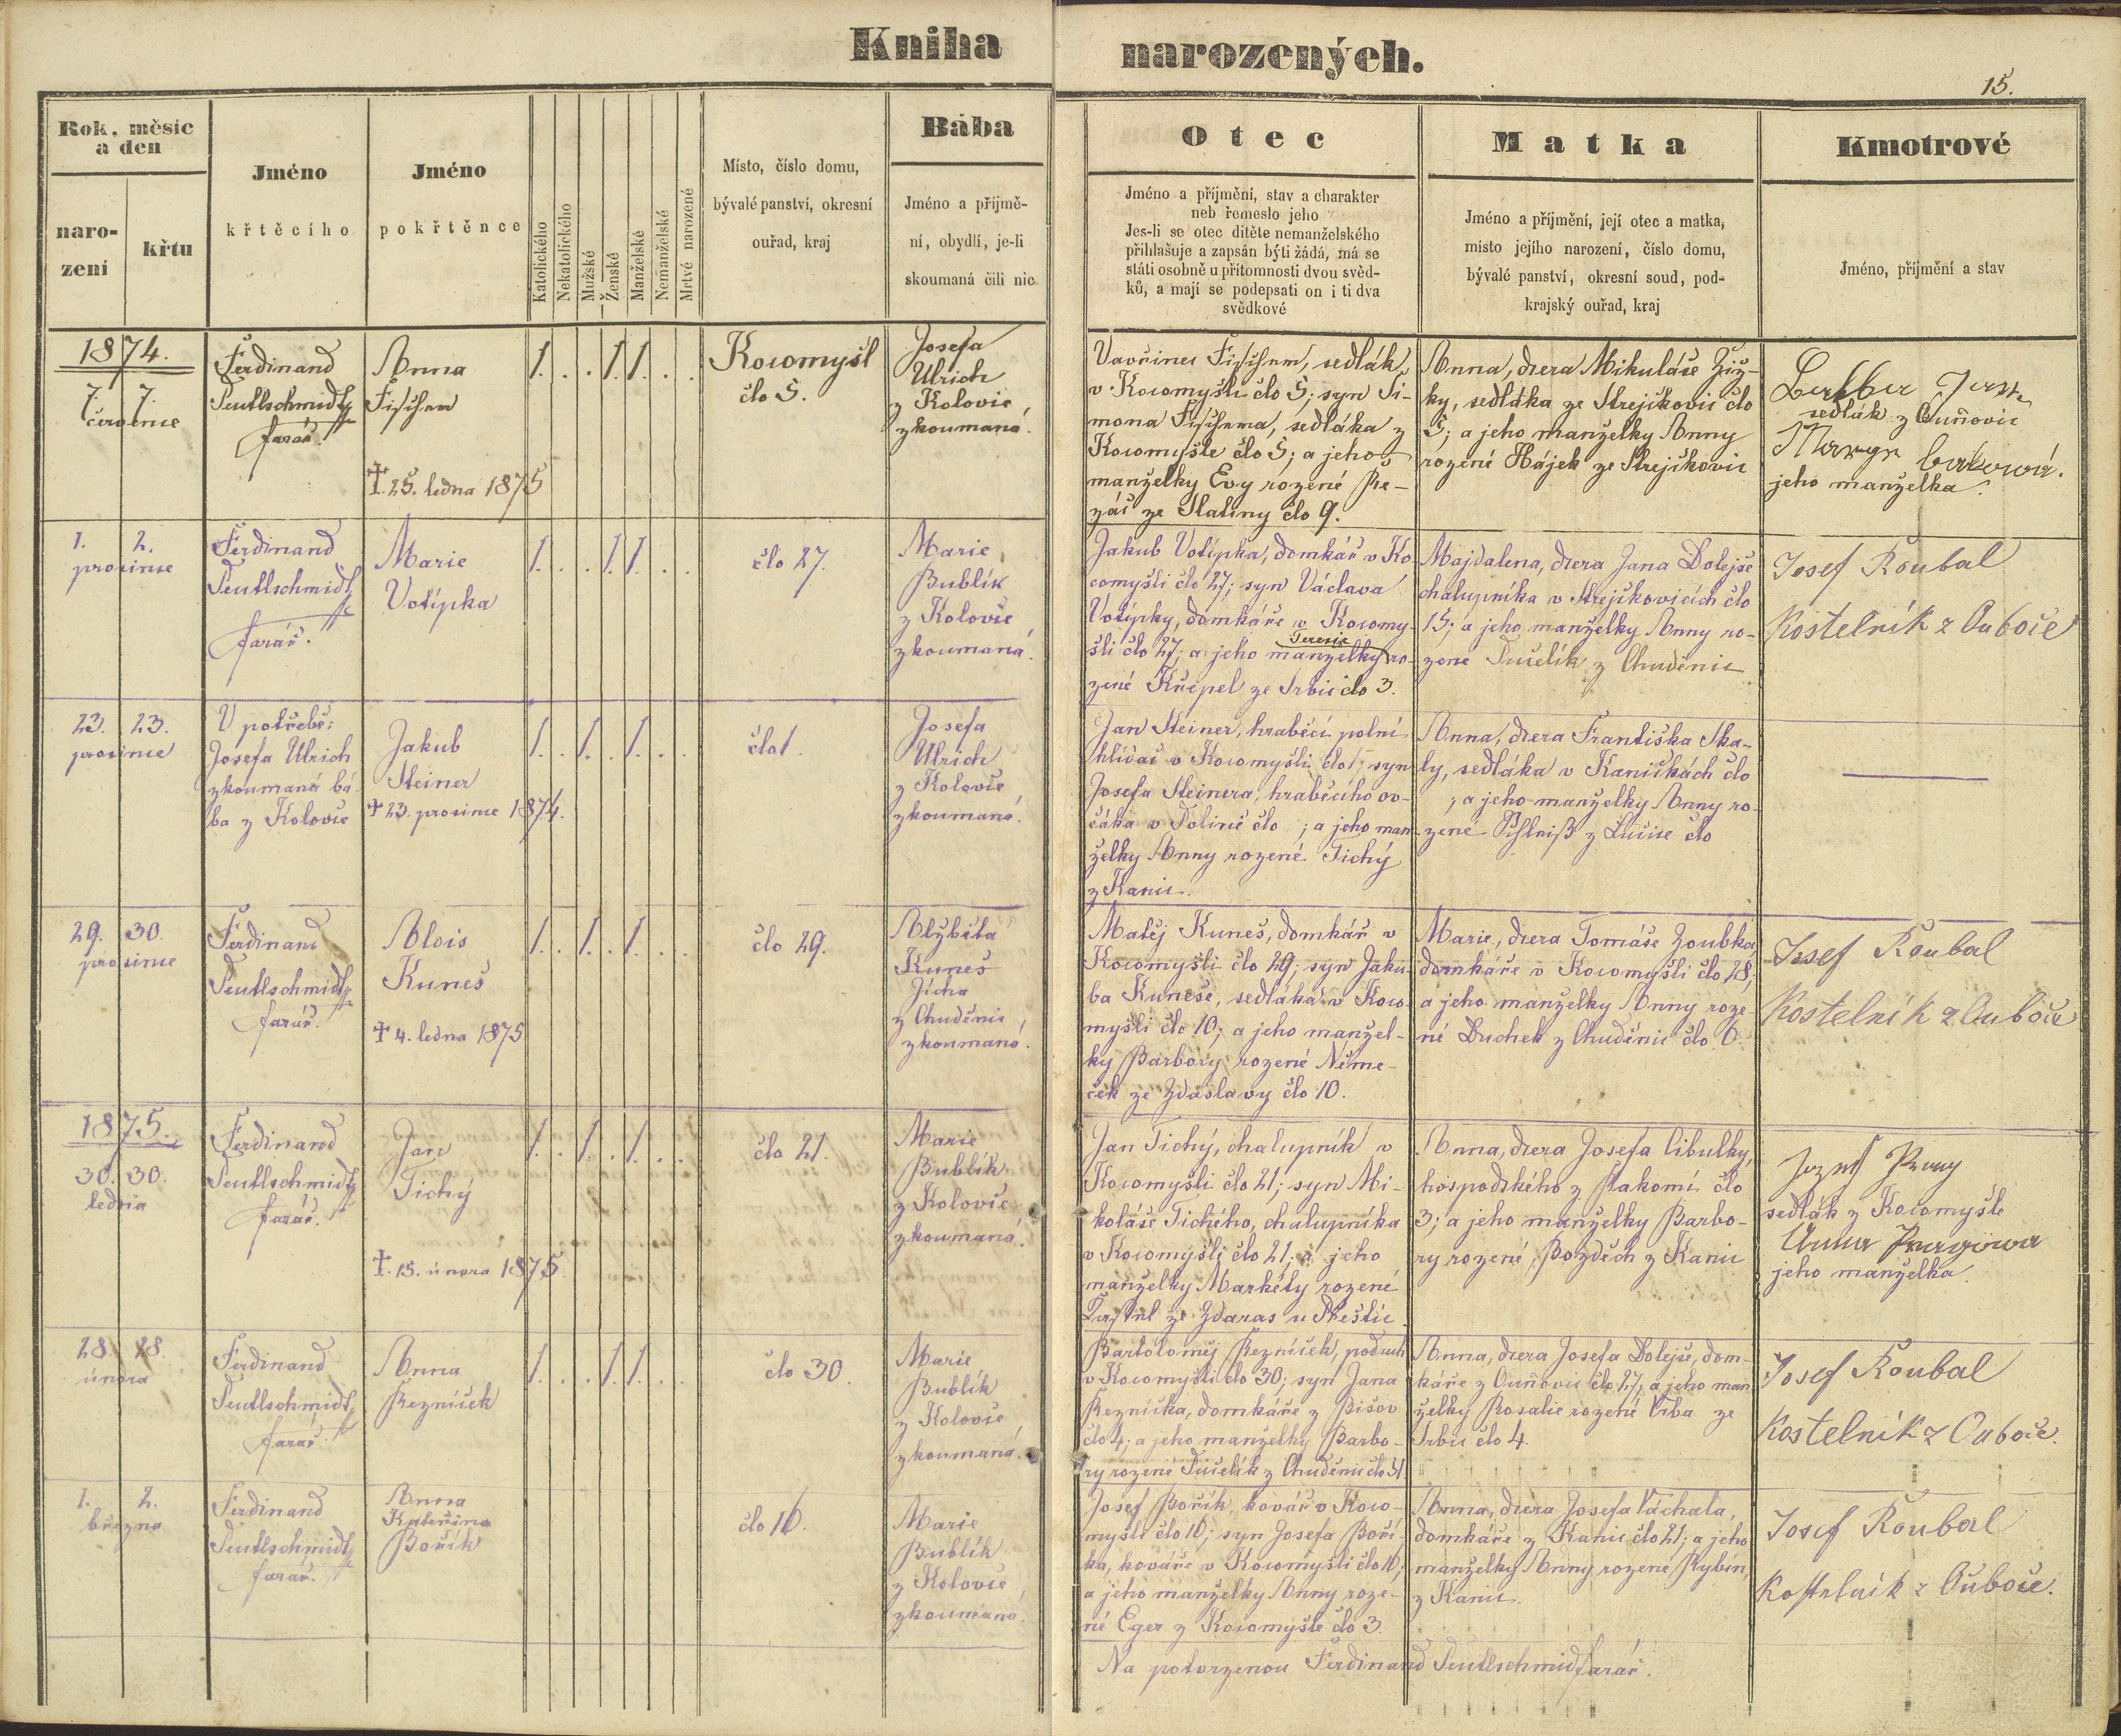 Kniha narozených.
15.
Rok, měsíc
a den
naro-
zení
křtu
Jméno
křtěcího
Jméno
pokřtěnce
Katolického
Nekatolického
Mužské
Ženské
Manželské
Nemanželské
Mrtvé narozené
Místo, číslo domu,
bývalé panství, okresní
ouřad, kraj
Bába
Jméno a příjmě-
ní, obydlí, je-li
skoumaná čili nic
Otec
Jméno a příjmění, stav a charakter
neb řemeslo jeho
Jes-li se otec dítěte nemanželského
přihlašuje a zapsán býti žádá, má se
státi osobně u přítomnosti dvou svěd-
ků, a mají se podepsati on i ti dva
svědkové
Matka
Jméno a příjmění, její otec a matka,
místo jejího narození, číslo domu,
bývalé panství, okresní soud, pod-
krajský ouřad, kraj
Kmotrové
Jméno, příjmění a stav
1874.
7. 7.
července
Ferdinand
Teutlschmidt,
farář.
Anna
Fischer
† 25. ledna 1875
1. . . 1. 1. . .
Kocomyšl
člo 5.
Josefa
Ulrich
z Kolovče,
zkoumaná.
Vavřinec Fischer, sedlák
v Kocomyšli člo 5; syn Ši-
mona Fischera, sedláka z
Kocomyšle člo 5; a jeho
manželky Evy rozené Ře-
záč ze Slatiny člo 9.
Anna, dcera Mikuláše Žiž-
ky, sedláka ze Strejčkovic člo
5; a jeho manželky Anny
rozené Hájek ze Strejčkovic
sedlák z Ouňovic
jeho manželka.
1. 2.
prosince
Ferdinand
Teutlschmidt,
farář.
Marie
Votípka
1. . . 1. 1. . .
člo 27.
Marie
Bublík
z Kolovče,
zkoumaná.
Jakub Votípka, domkář v Ko-
comyšli člo 27; syn Václava
Votípky, domkáře v Kocomy-
šli člo 27; a jeho manželky Teresie ro-
zené Křepel ze Srbic člo 3.
Majdalena, dcera Jana Dolejše
chalupníka v Strejčkovicích člo
15; a jeho manželky Anny ro-
zené Tučelík z Chuděnic
Josef Roubal
Kostelník z Ouboče
23. 23.
prosince
V potřebě:
Josefa Ulrich
zkoumaná bá-
ba z Kolovče
Jakub
Steiner
† 23. prosince 1874.
1. . 1. . 1. . .
člo 1.
Josefa
Ulrich
z Kolovče,
zkoumaná.
Jan Steiner, hraběcí polní
hlídač v Kocomyšli člo 1; syn
Josefa Steinera, hraběcího ov-
čáka v člo ; a jeho man-
želky Anny rozené Tichý
z Kanic.
Anna, dcera Františka Ska-
ly, sedláka v Kaničkách člo
; a jeho manželky Anny ro-
zené z člo
29. 30.
prosince
Ferdinand
Teutlschmidt,
farář.
Alois
Kuneš
† 4. ledna 1875
1. . 1. . 1. . .
člo 29.
Alžběta
Kuneš
Jícha
z Chuděnic,
zkoumaná.
Matěj Kuneš, domkář v
Kocomyšli člo 29; syn Jaku-
ba Kuneše, sedláka v Koco-
myšli člo 10; a jeho manžel-
ky Barbory rozené Něme-
ček ze Zdaslavy člo 10.
Marie, dcera Tomáše Zoubka
domkáře v Kocomyšli člo 28;
a jeho manželky Anny roze-
né Duchek z Chuděnic člo 6.
Josef Roubal
Kostelník z Ouboče
1875.
30. 30.
ledna
Ferdinand
Teutlschmidt,
farář.
Jan
Tichý
† 15. února 1875
1. . 1. . 1. . .
člo 21.
Marie
Bublík
z Kolovče,
zkoumaná.
Jan Tichý, chalupník v
Kocomyšli člo 21; syn Mi-
koláše Tichého, chalupníka
v Kocomyšli člo 21; a jeho
manželky Markéty rozené
ze Zdaras u Přeštic.
Anna, dcera Josefa Cibulky,
hospodského z člo
3; a jeho manželky Barbo-
ry rozené Bozděch z Kanic
sedlák z Kocomyšle
Anna
jeho manželka.
28. 28.
února
Ferdinand
Teutlschmidt,
farář.
Anna
Řezníček
1. . . 1. 1. . .
člo 30.
Marie
Bublík
z Kolovče,
zkoumaná.
Bartoloměj Řezníček, podruh
v Kocomyšli člo 30; syn Jana
Řezníčka, domkáře z
člo 4; a jeho manželky Barbo-
ry rozené Tučelík z Chuděnic člo 31
Anna, dcera Josefa Dolejše, dom-
káře z Ouňovic člo 27; a jeho man-
želky Rosalie rozené Vrba ze
Srbic člo 4.
Josef Roubal
Kostelník z Ouboče.
1. 2.
března
Ferdinand
Teutlschmidt,
farář.
Anna
Kateřina
Bořík
člo 16.
Marie
Bublík
z Kolovče,
zkoumaná.
Josef Bořík, kovář v Koco-
myšli člo 16; syn Josefa Boří-
ka, kováře v Kocomyšli člo 16;
a jeho manželky Anny roze-
né Eger z Kocomyšle člo 3.
Anna, dcera Josefa Váchala,
domkáře z Kanic člo 21; a jeho
manželky Anny rozené
z Kanic.
Josef Roubal
Kostelník z Ouboče.
Na potvrzenou Ferdinand Teutlschmidt, farář.